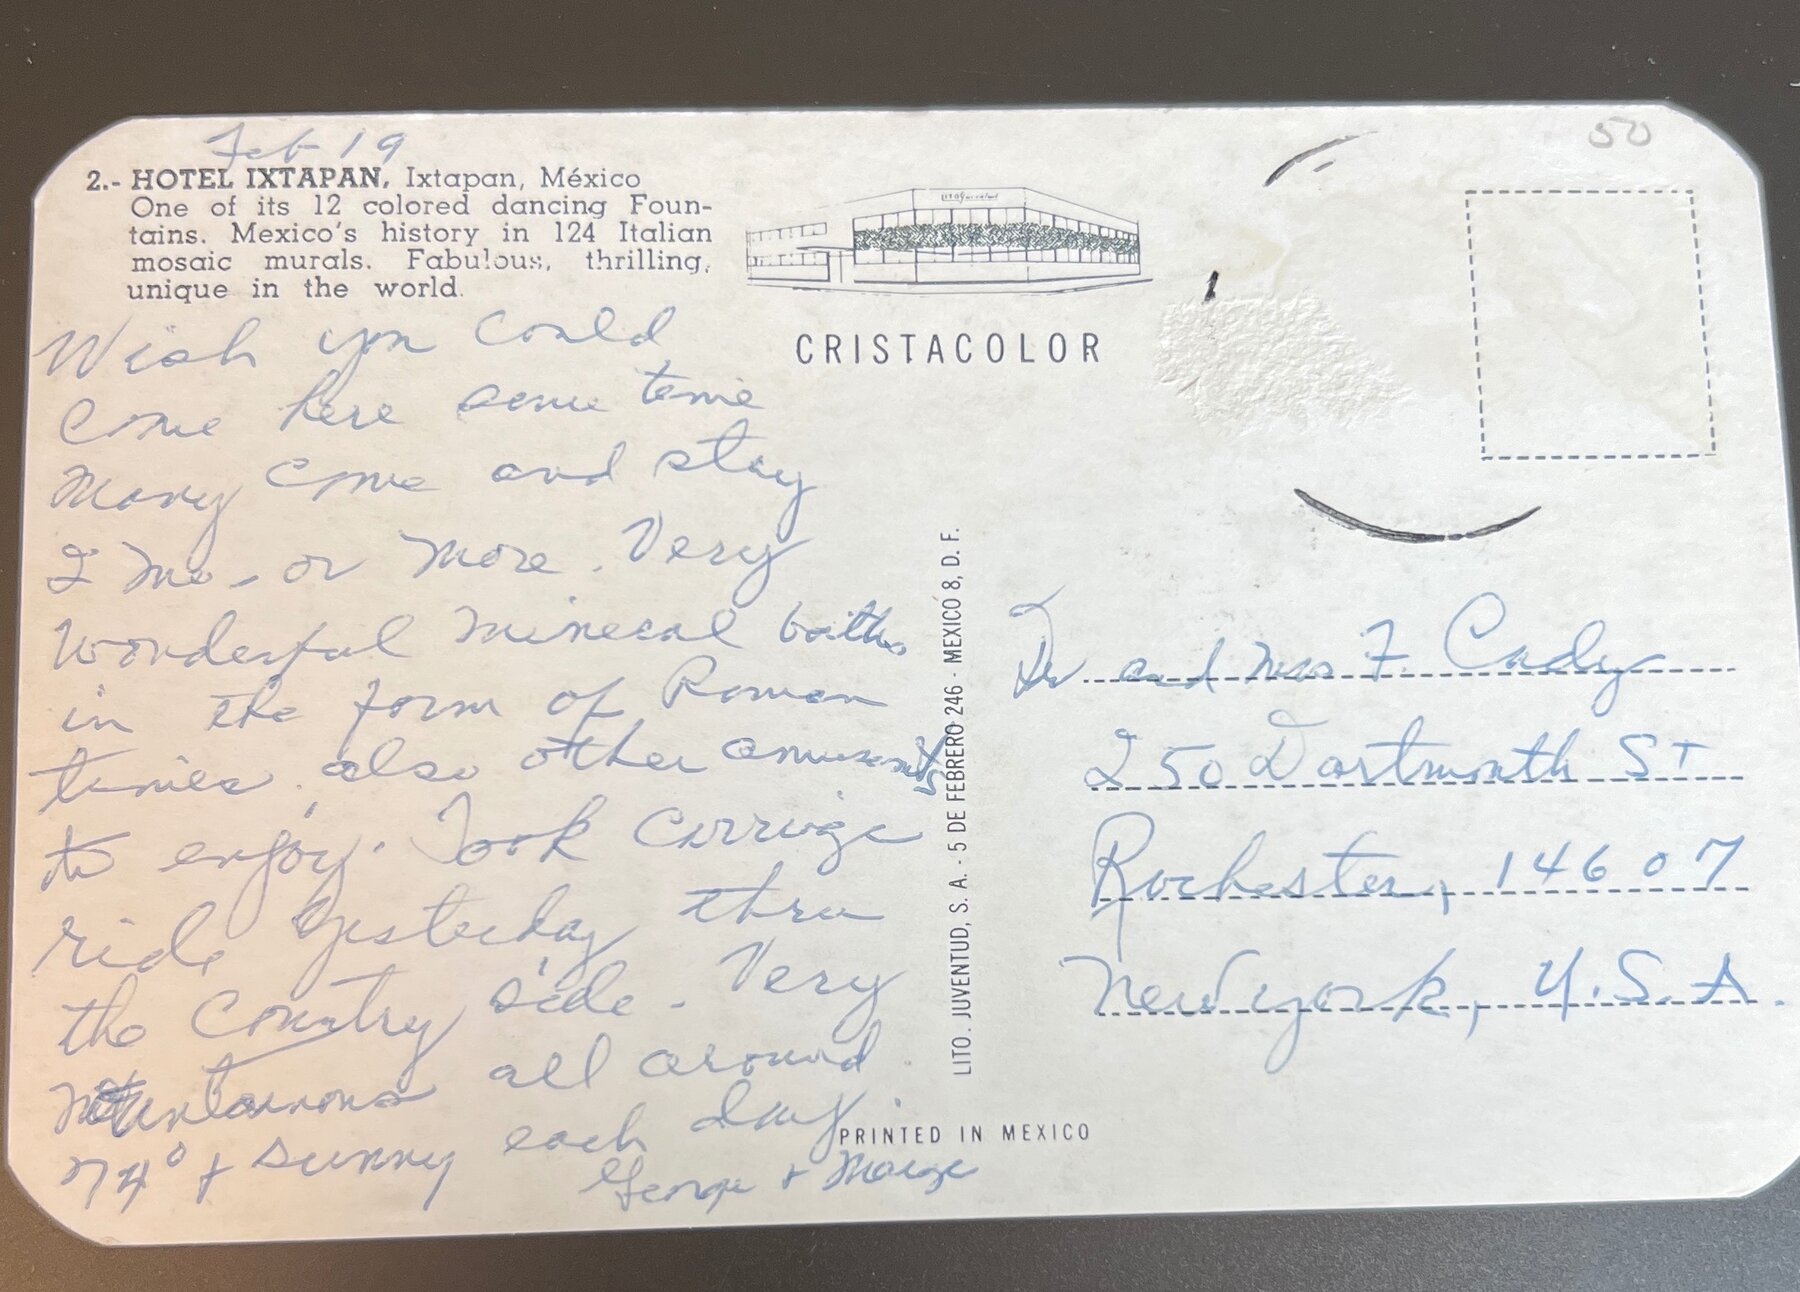 Feb 19
2.- HOTEL IXTAPAN, Ixtapan, México
One of its 12 colored dancing Foun-
tains. Mexico's history in 124 Italian
mosaic murals. Fabulous, thrilling,
unique in the world.
Wish you could
come here some time
Many come and stay
2 mo - or more. Very
wonderful mineral baths
in the form of Roman
times. also other amusements
to enjoy. Took carriage
ride yesterday thru
the country side - Very
mountainous all around
74° + sunny each day.
George + Marge
CRISTACOLOR
LITO. JUVENTUD, S. A. - 5 DE FEBRERO 246 - MEXICO 8, D. F.
PRINTED IN MEXICO
50
Dr and Mrs F. Cady
250 Dartmouth ST
Rochester, 14607
New York, U.S.A.